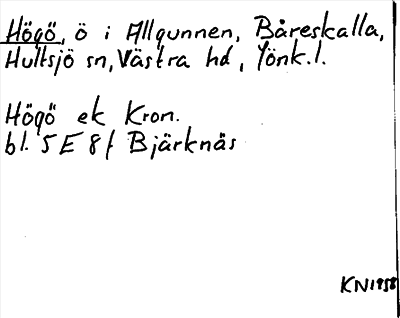 Högö, ö i Allgunnen, Båreskalla,
Hultsjö sn, Västra hd, Jönk.l.
Högö ek Kron.
bl. 5 E 8 f Bjärknäs
KN1958